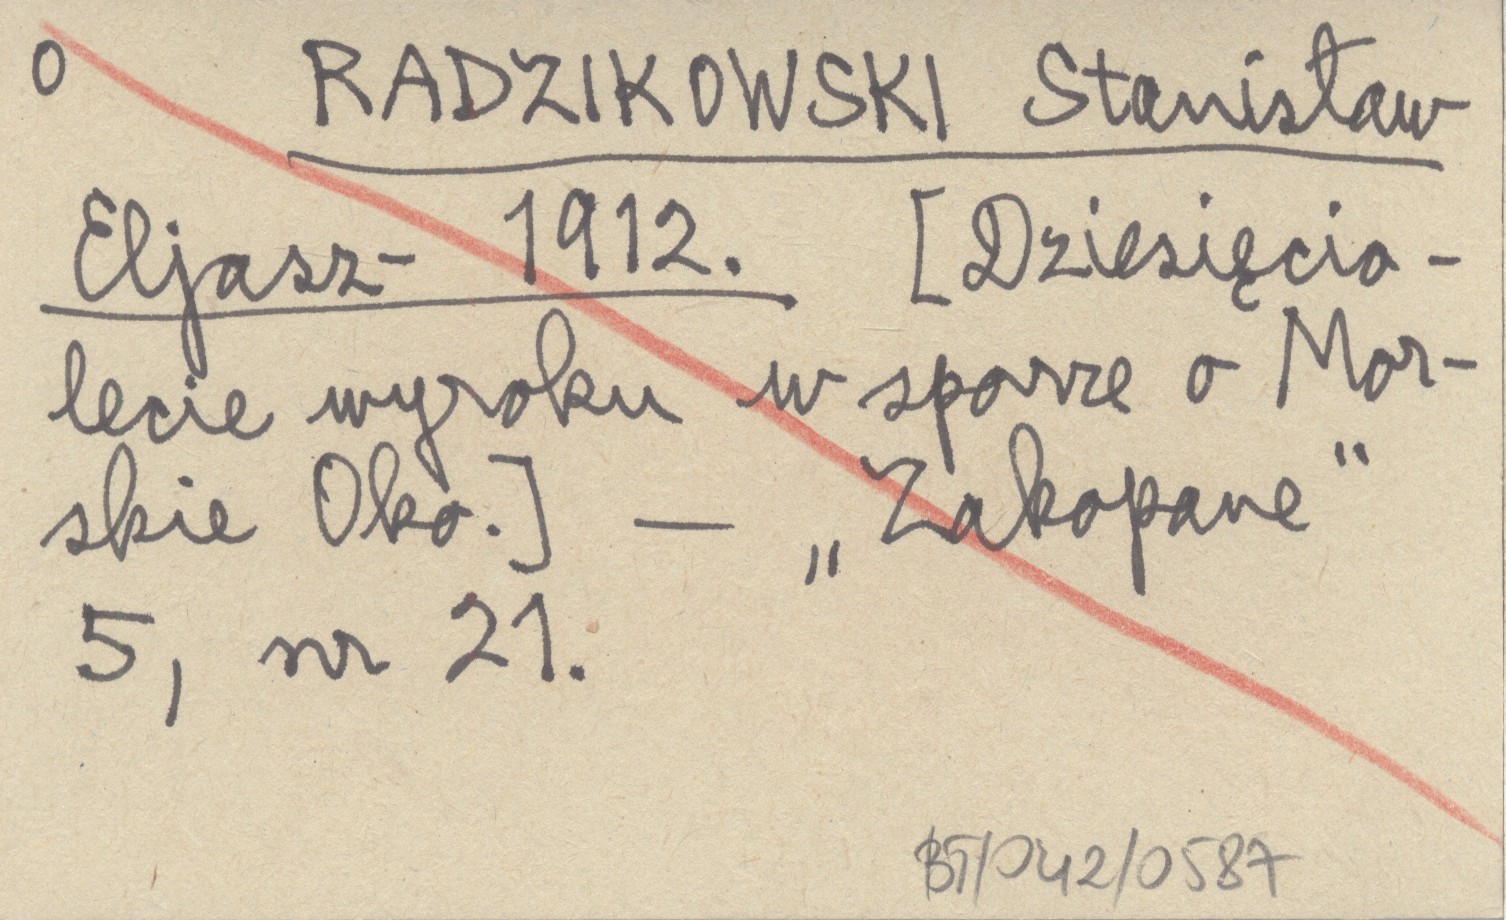 O RADZIKOWSKI Stanisław
Eljasz- 1912. [Dziesięcio-
lecie wyroku w sporze o Mor-
skie Oko.] — „Zakopane"
5, nr 21.
BT/042/0587